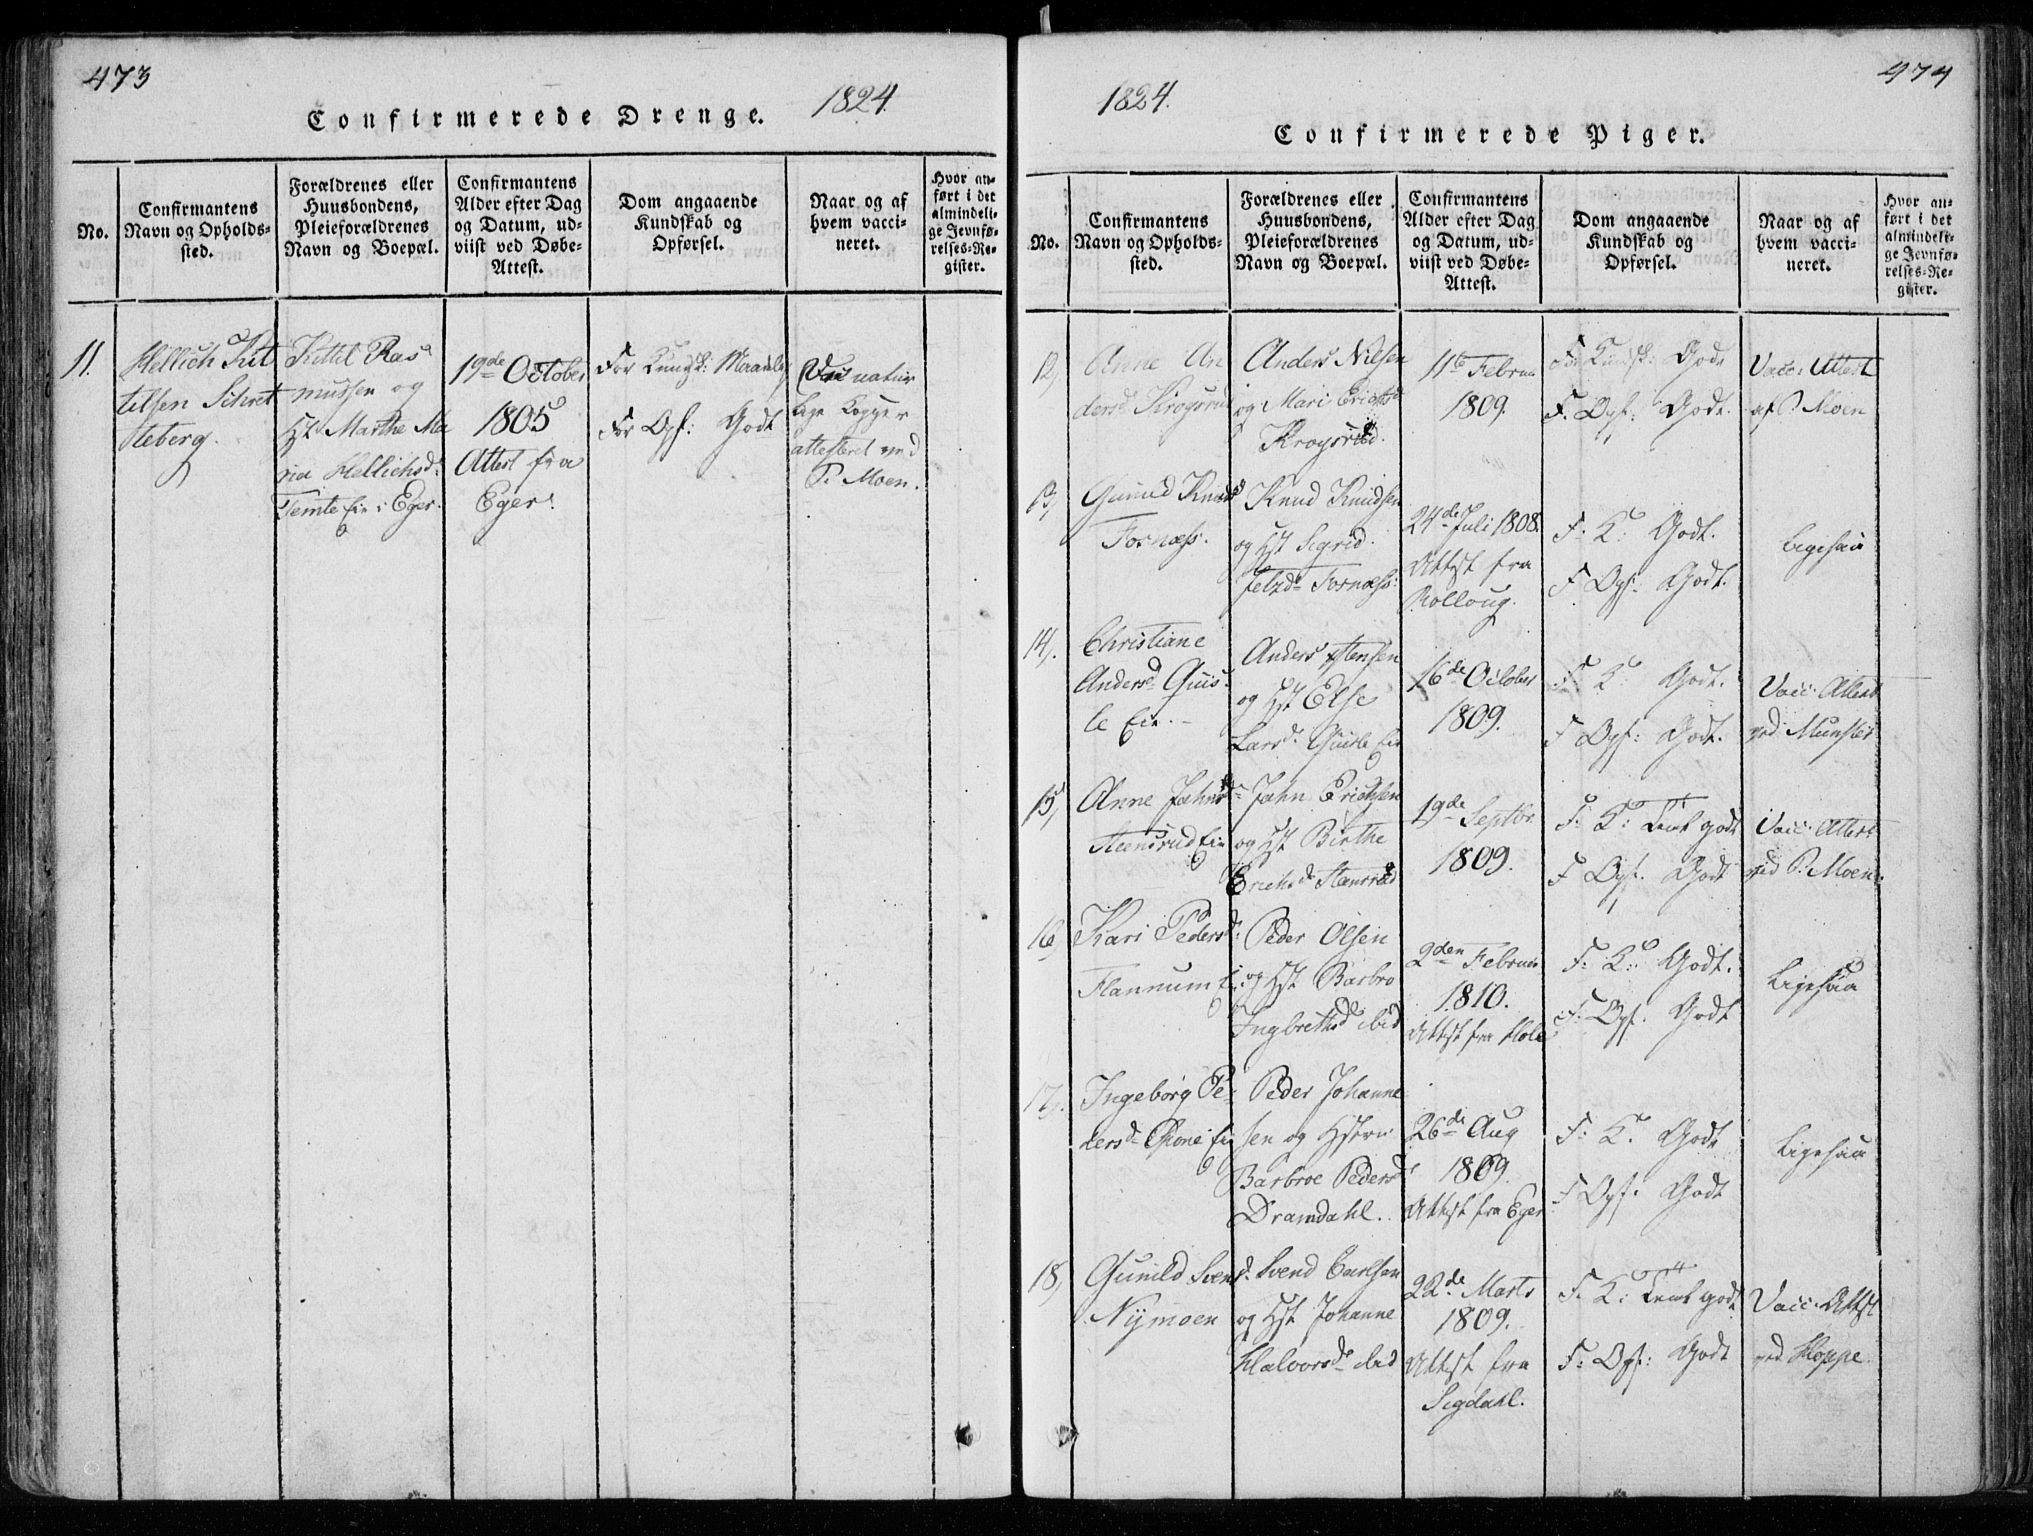 473
1824
Confirmerede Drenge.
No.
Confirmantens
Navn og Opholds-
sted.
Forældrenes eller
Huusbondens,
Pleieforældrenes
Navn og Boepæl.
Confirmantens
Alder efter Dag
og Datum, ud-
viist ved Døbe-
Attest.
Dom angaaende
Kundskab og
Opførsel.
Naar og af
hvem vacci-
neret.
Hvor an-
ført i det
almindeli-
ge Jevnfø-
relses-Re-
gister.
11.
Hellich Kit
telsen Schret
teberg.
Kittel Ras
mussen og
Hst Marthe Ma
ria Hellichsd:
Temte Eie i Eger.
19de October
1805
Attest fra
Eger.
For Kundsk: Maadelig
For Opf: Godt
natur
lige Kopper
attesteret ved
P. Moen.
474
1824.
Confirmerede Piger.
No.
Confirmantens
Navn og Opholds-
sted.
Forældrenes eller
Huusbondens,
Pleieforældrenes
Navn og Boepæl.
Confirmantens
Alder efter Dag
og Datum, ud-
viist ved Døbe-
Attest.
Dom angaaende
Kundskab og
Opførsel.
Naar og af
hvem vacci-
neret.
Hvor an-
ført i det
almindeli-
ge Jevnfø-
relses-Re-
gister.
12,
Anne An
dersd Krogsrud
Anders Nilsen
og Mari Erichsd
Krogsrud.
11te Februar
1809.
For Kundsk: Godt
F. Opf: Godt.
Vacc: Attest
af P. Moen
13,
Gunild Knudsd
Fosnæss.
Knud Knudsen
og Hst Sigrid
Fosnæss:
24de Juli 1808.
Attest fra
Rolloug.
F: K: Godt.
F Opf: Godt.
Ligesaa
14,.
Christiane
Andersd Guis
le Eie.
Anders Stensen
og Hst Else
Larsd. Guisle Eie
16de October
1809.
F: K: Godt.
F Opf: Godt.
Vacc: Attest
ved Munster
15,
Anne Jahnsd
Steensrud Eie
Jahn Erichsen
og Hst Birthe
Erichsd Steensrud
19de Septbr.
1809.
F: K: Temt godt
F Opf. Godt
Vacc: Attest
ved P. Moen.
16,
Kari Pedersd:
Flannum E.
Peder Olsen
og Hst Barbro
Ingbrethsd ibid
2den Februar
1810.
Attest fra Hole
F: K: Godt.
F: Opf. Godt
Ligesaa
17,.
Ingeborg Pe-
dersd Eie
Peder Johanne
sen og Hstru
Barbroe Pedersd
Dramdahl.
26de Aug
1809.
Attest fra Eger
F: K. Godt
F Opf. Godt
Ligesaa
18,
Gunild Svensd.
Nymoen
Svend Carlsen
og Hst Johanne
Halvorsd ibid
22de. Marts
1809.
Attest fra
Sigdahl.
F. K: Temt godt
F: Opf: Godt
Vacc. Attest
ved Hoppe.